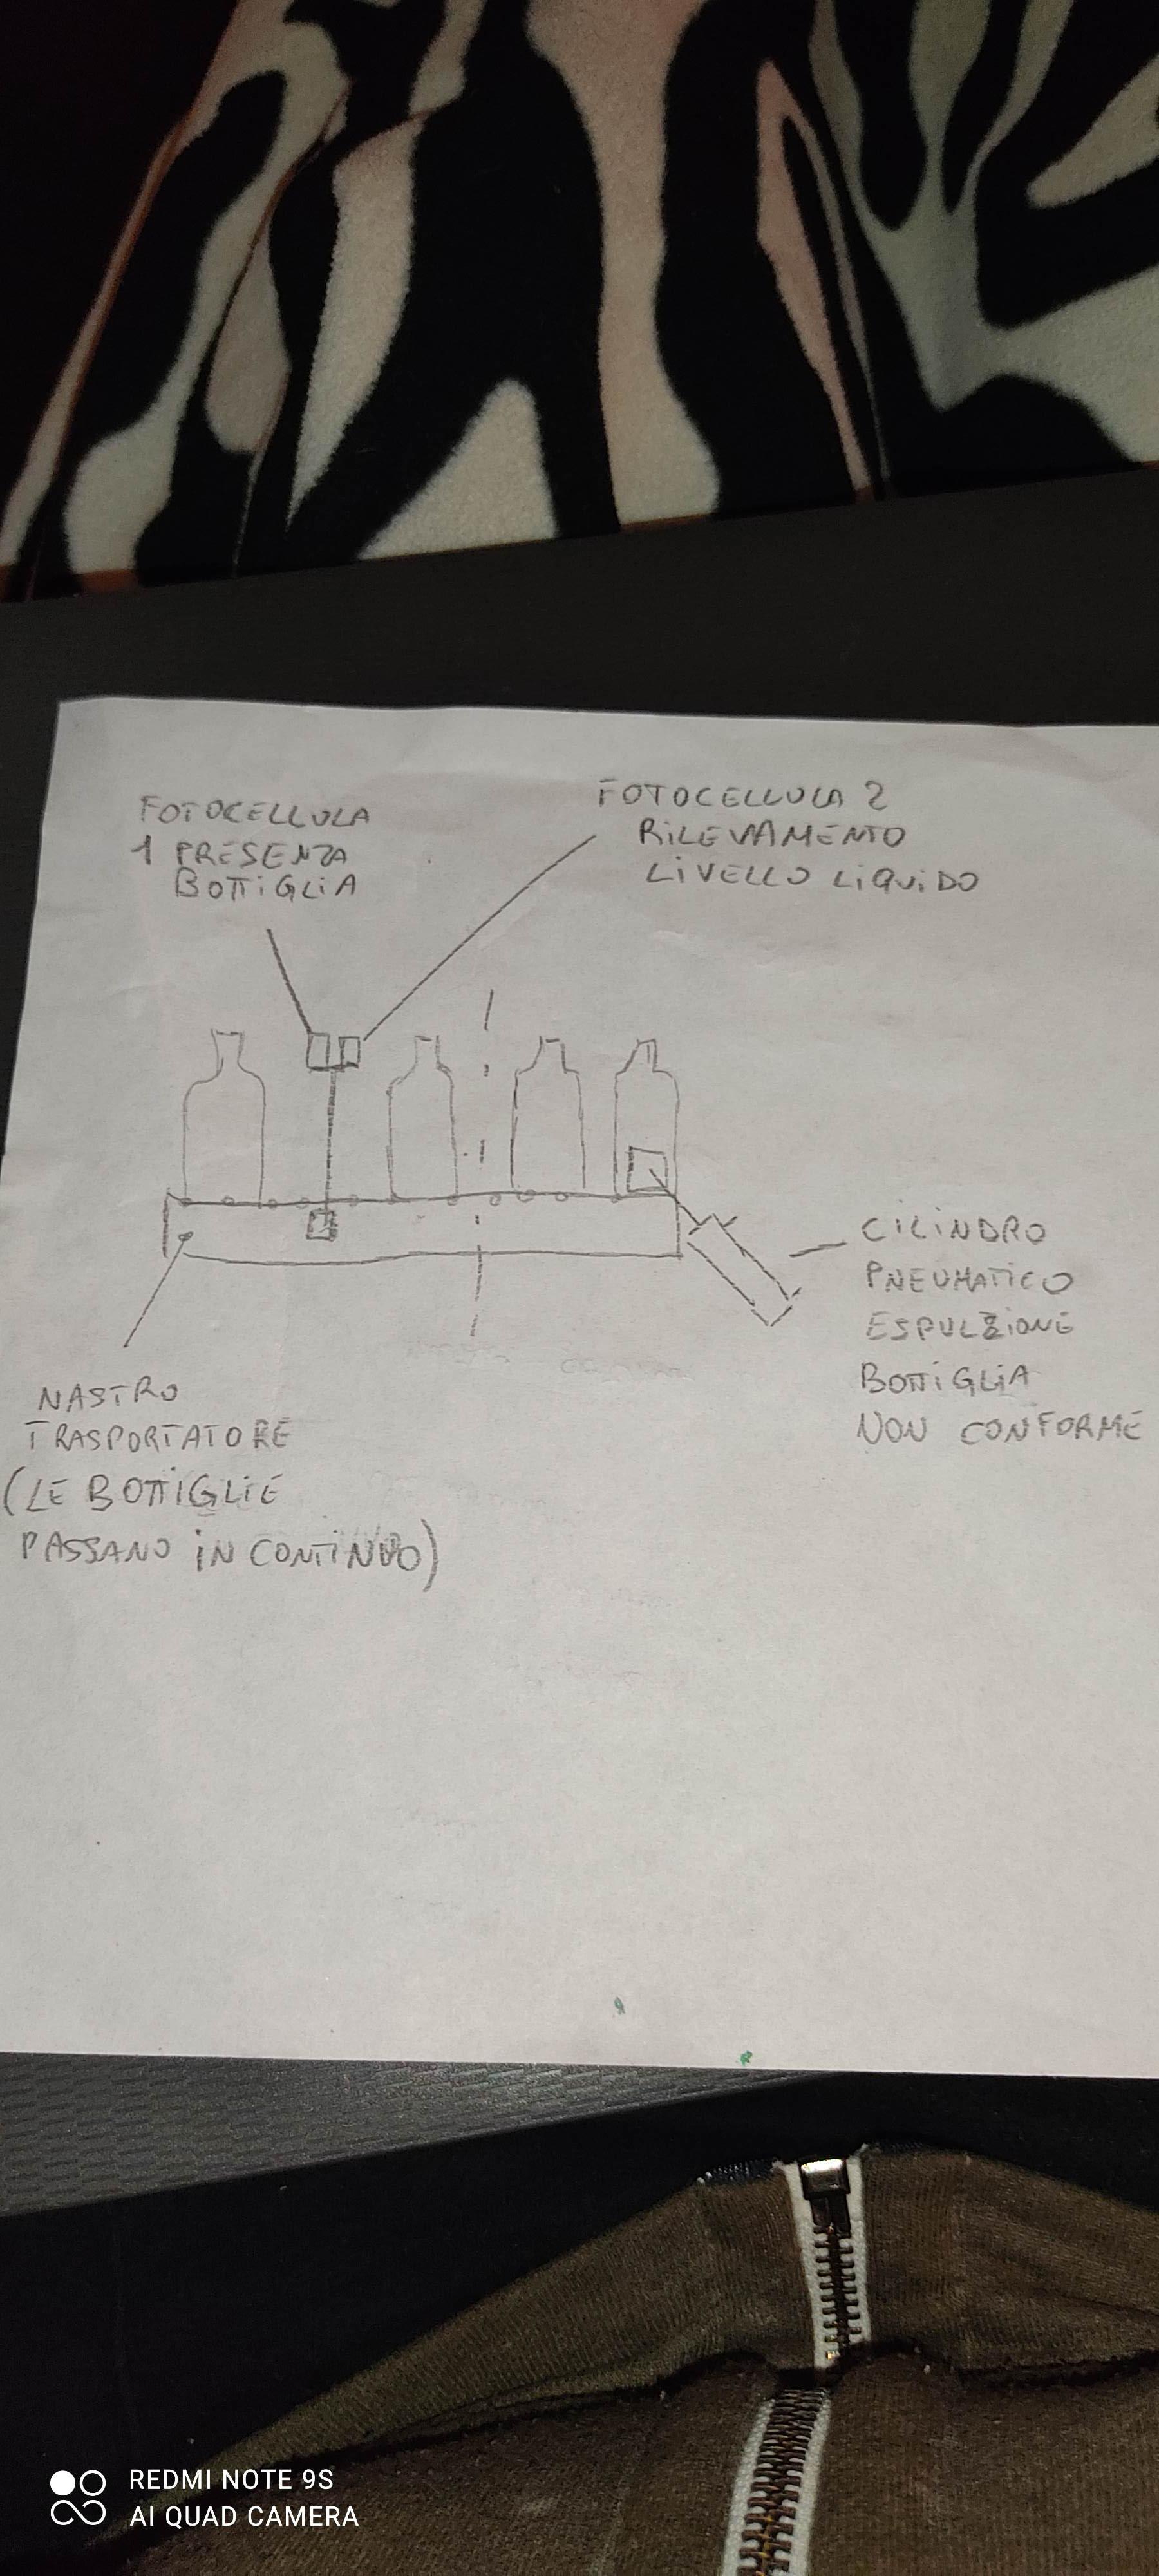 FOTOCELLULA
1 PRESENZA
BOTTIGLIA
FOTOCELLULA 2
RILEVAMENTO
LIVELLO LIQUIDO
CILINDRO
PNEUMATICO
ESPULZIONE
BOTTIGLIA
NON CONFORME
NASTRO
TRASPORTATORE
(LE BOTTIGLIE
PASSANO IN CONTINUO)
REDMI NOTE 9S
AI QUAD CAMERA